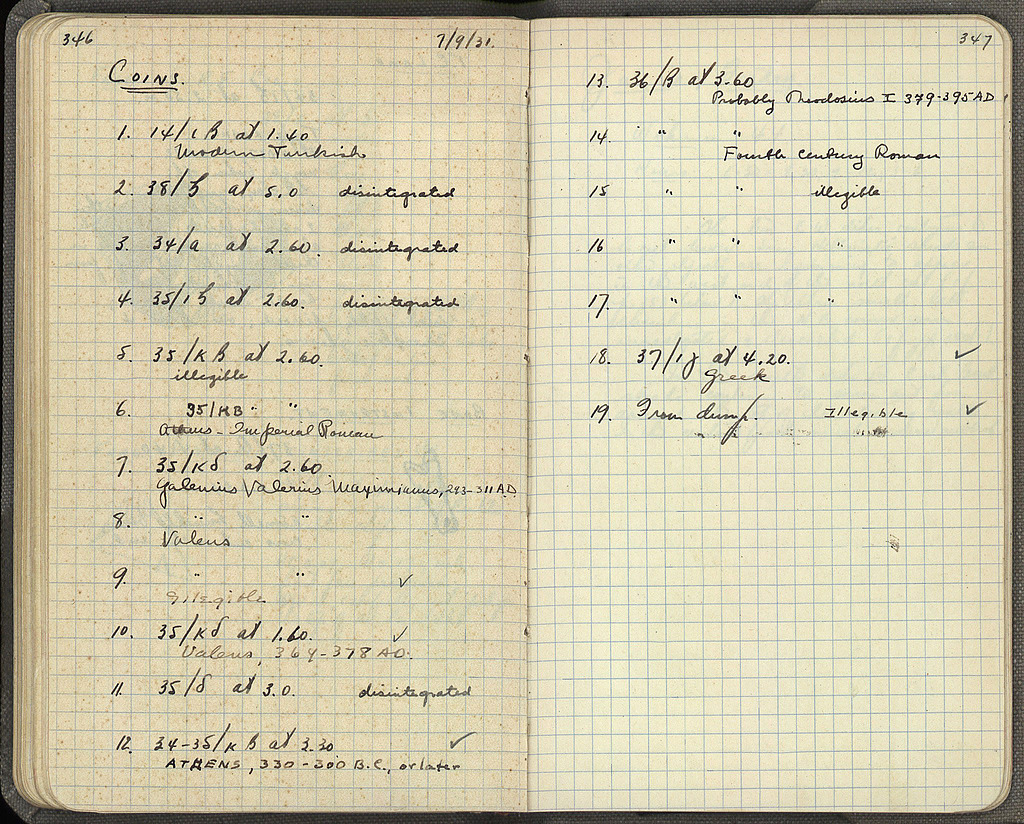 346
7/9/31.
COINS.
1. 14/ιβ at 1.40
Modern Turkish
2. 38/ at 5.0 disintegrated
3. 34/a at 2.60. disintegrated
4. 35/ at 2.60. disintegrated
5. 35/Κβ at 2.60.
illegible
6. 35/ΚΒ " "
Imperial Roman
7. 35/κδ at 2.60.
Galerius Valerius Maximianus, 293-311 A.D.
8. " "
Valens
9. " " ✓
Illegible
10. 35/κδ at 1.60. ✓
Valens, 364-378 AD.
11. 35/δ at 3.0. disintegrated
12. 34-35/κβ at 3.30 ✓
ATHENS, 330-300 B.C., or later
347
13. 36/β at 3.60
Probably Theodosius I 379-395 AD
14. " "
Fourth century Roman
15 " " illegible
16 " " "
17. " " "
18. 37/ at 4.20. ✓
Greek
19. From dump. Illegible ✓